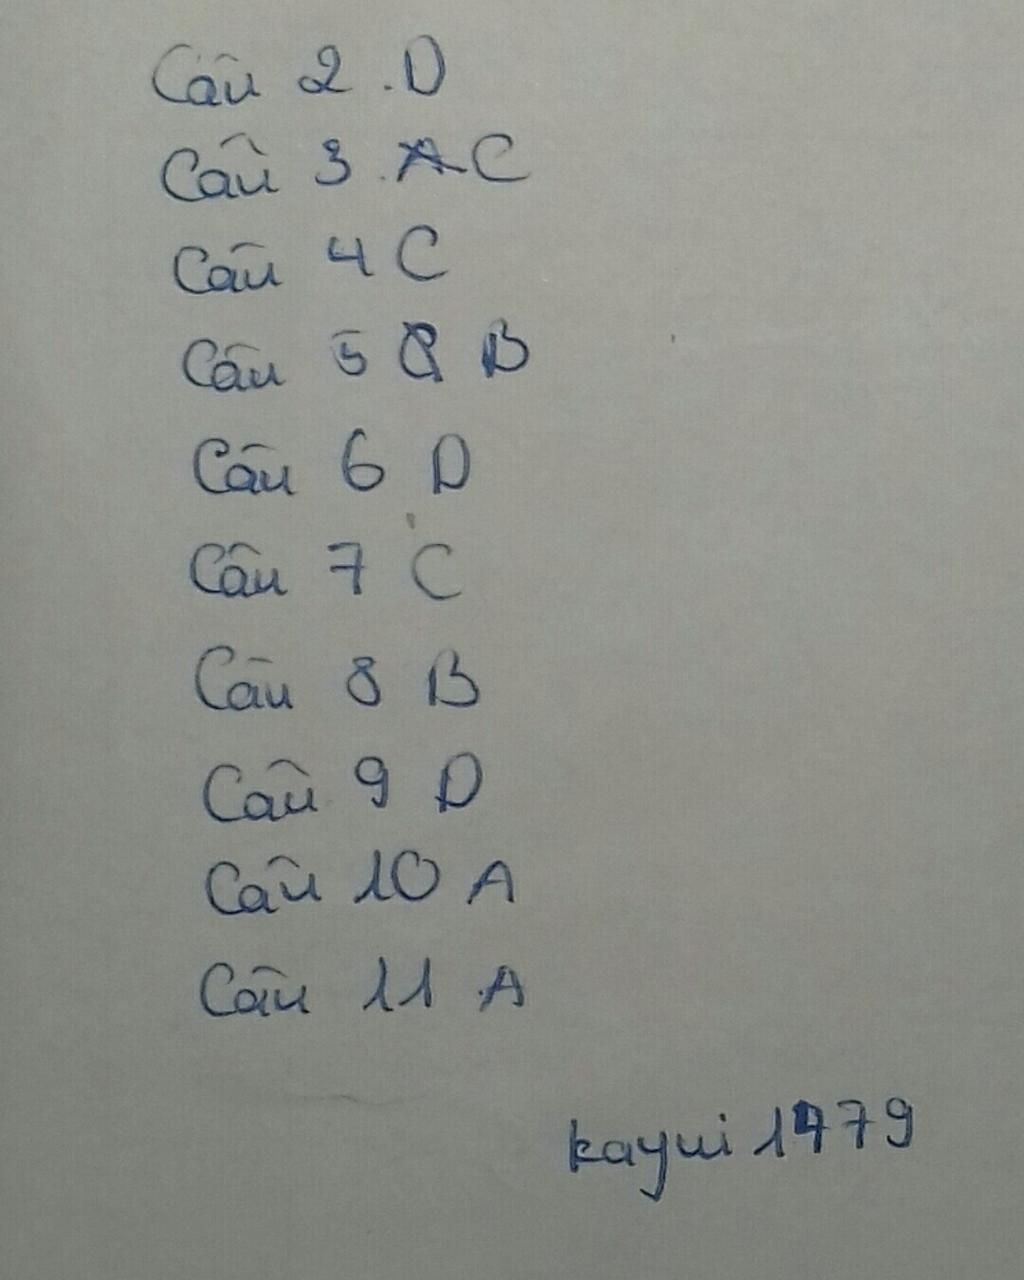 Câu 2. D
Câu 3. C
Câu 4 C
Câu 5 B
Câu 6 D
Câu 7 C
Câu 8 B
Câu 9 D
Câu 10 A
Câu 11 A